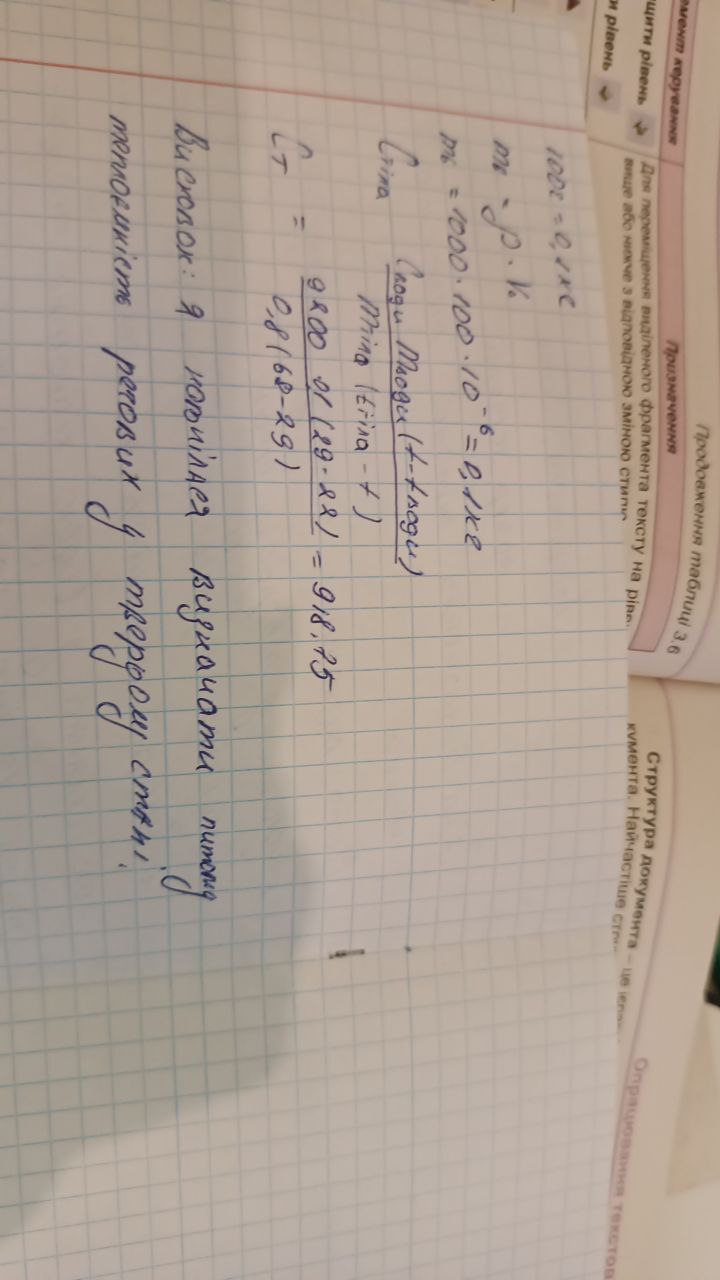 Продовження таблиці 3.6
Призначення
Для переміщення виділеного фрагмента тексту на
вище або нижче з відповідною зміною стилю
емент керування
щити рівень
и рівень
Структура документа – це
кумента. Найчастіше
Опрацювання текстов
100г = 0,1кг
m = ρ · V
m = 1000 · 100 · 10⁻⁶ = 0,1кг
Cтіла Cводи mводи (t - tводи)
mтіла (tтіла - t)
Cт = 4200 01(29-22) = 918,75
0,8(68-29)
Висновок: я навчілася визначати питому
теплоємність речовин у твердому стані.